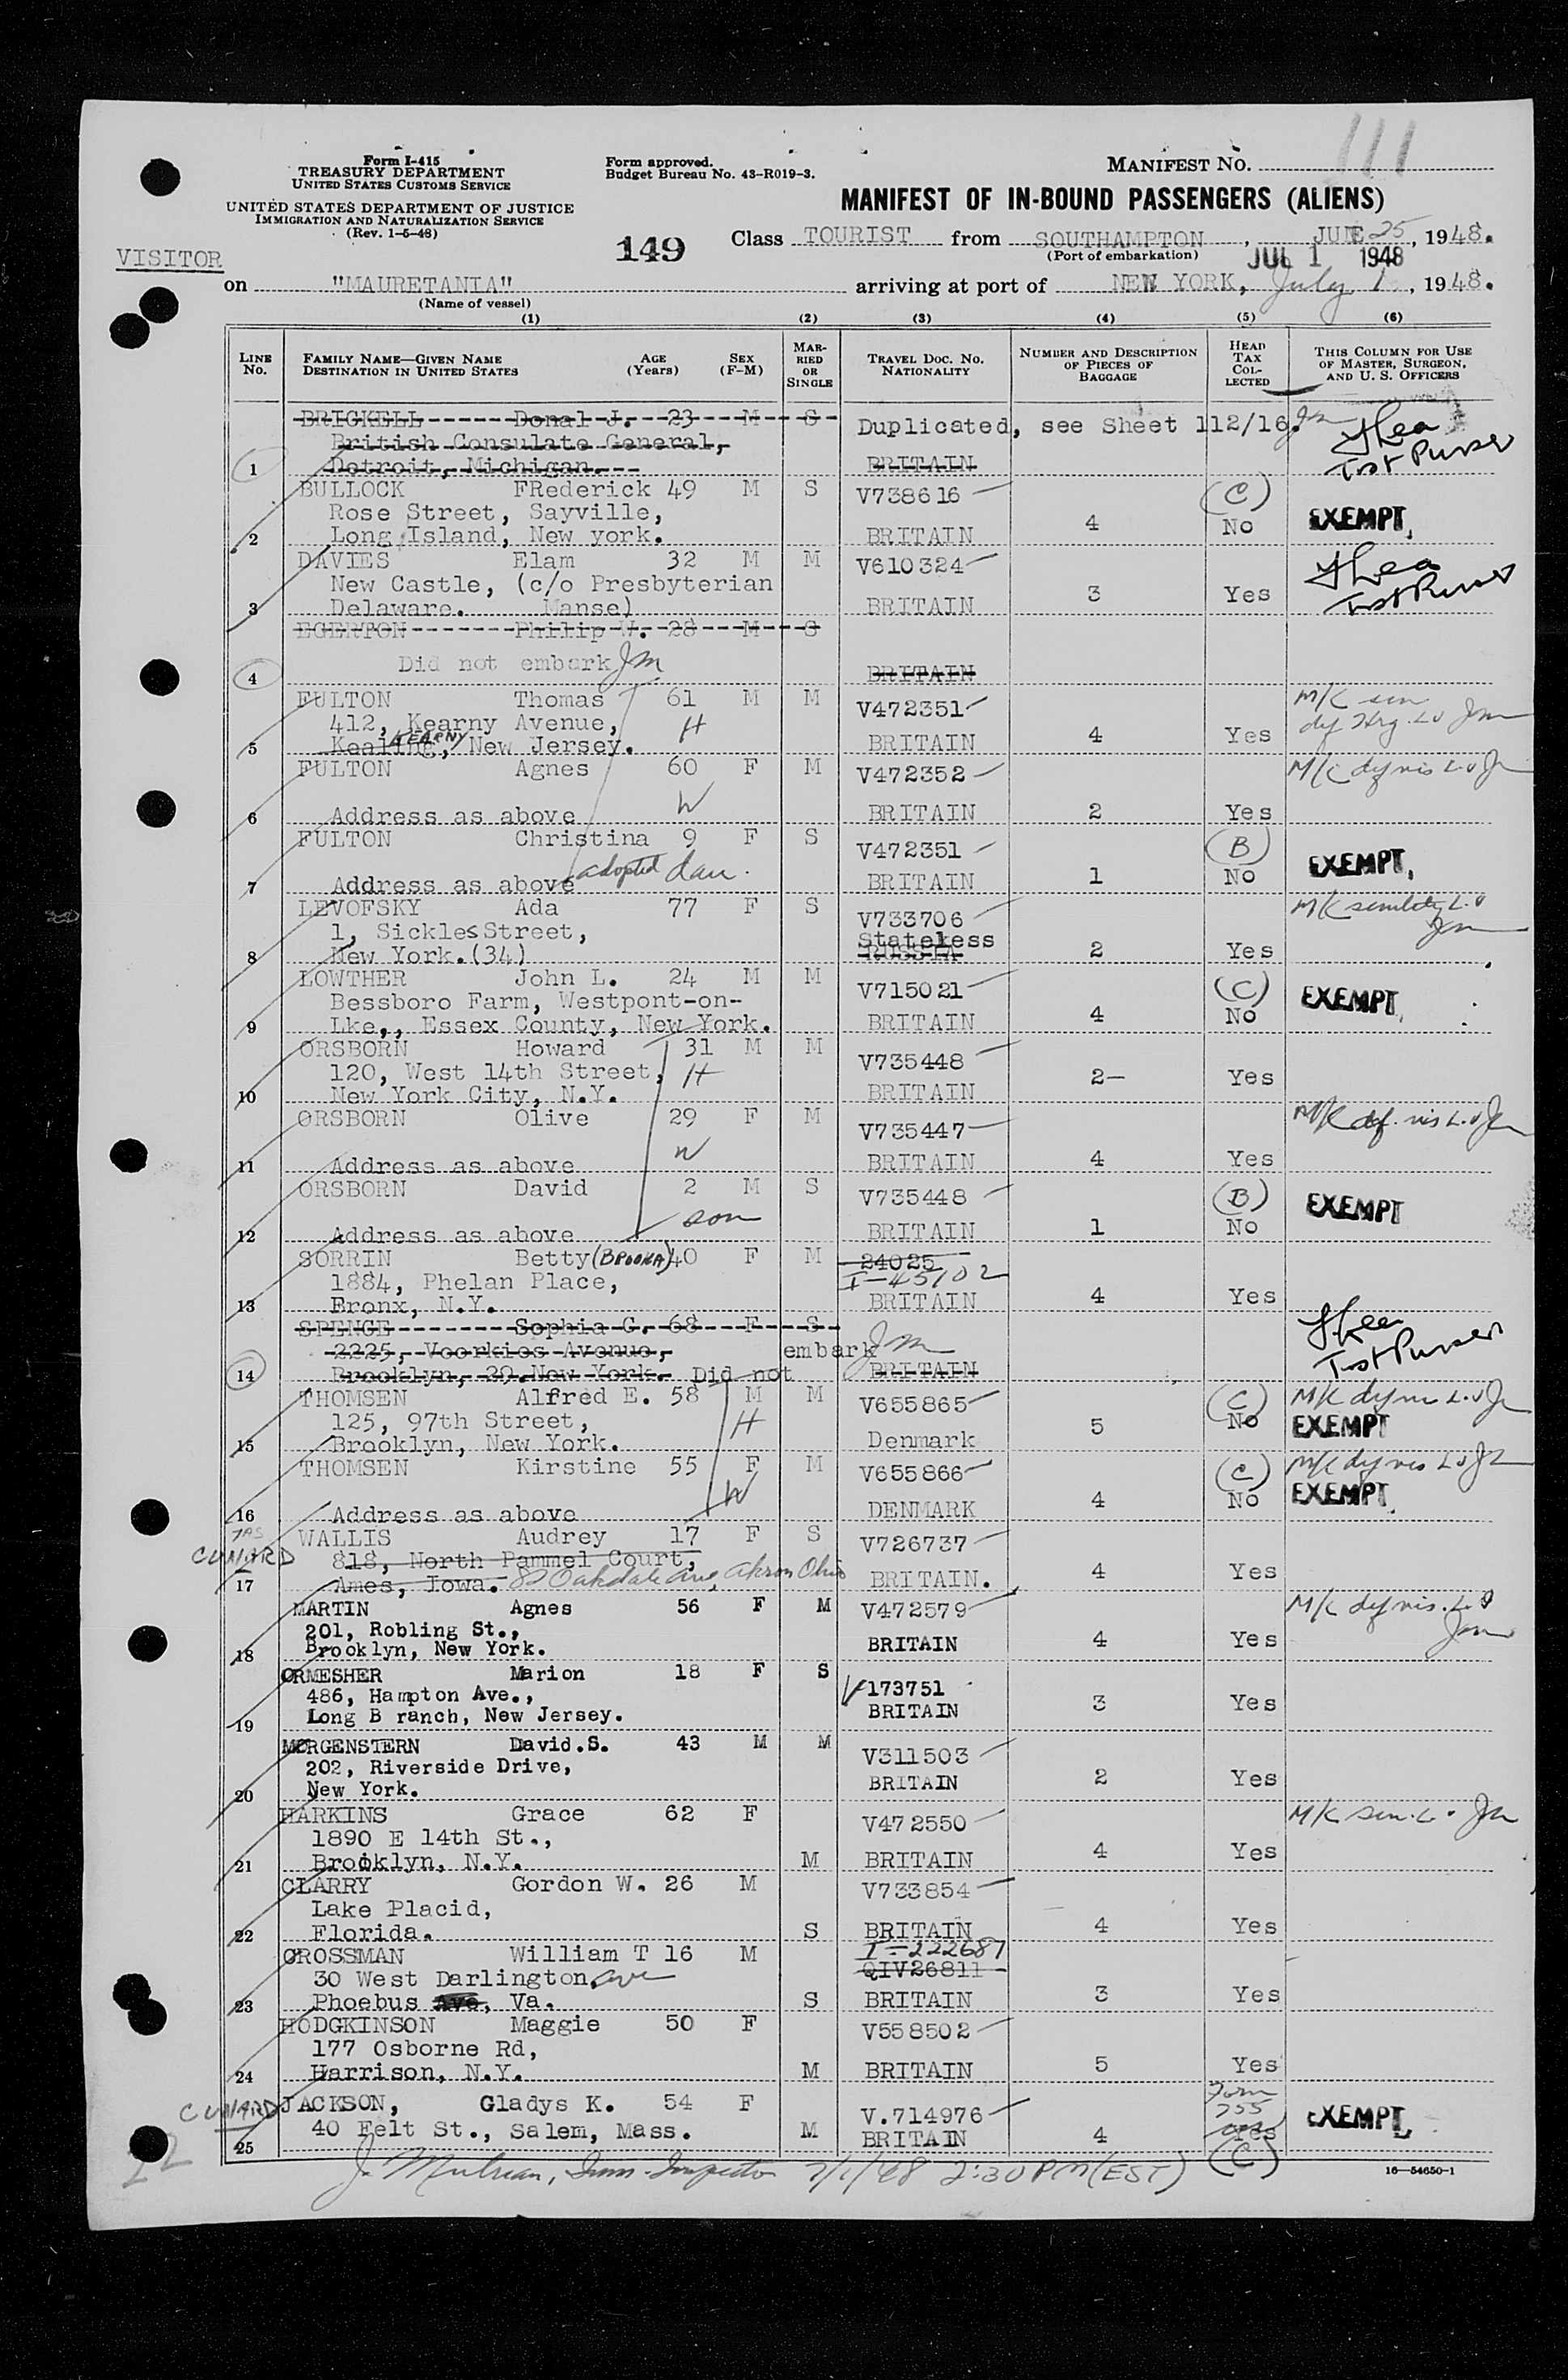 111
Form I-415
TREASURY DEPARTMENT
UNITED STATES CUSTOMS SERVICE
UNITED STATES DEPARTMENT OF JUSTICE
IMMIGRATION AND NATURALIZATION SERVICE
(Rev. 1-5-48)
Form approved.
Budget Bureau No. 43-R019-3.
MANIFEST NO.
MANIFEST OF IN-BOUND PASSENGERS (ALIENS)
149
Class TOURIST from SOUTHAMPTON, JUNE 25, 1948.
(Port of embarkation)
JUL 1 1948
VISITOR
on "MAURETANIA" arriving at port of NEW YORK, July 1, 1948.
(Name of vessel)
(1) (2) (3) (4) (5) (6)
LINE No. FAMILY NAME—GIVEN NAME DESTINATION IN UNITED STATES AGE (Years) SEX (F-M) MARRIED OR SINGLE TRAVEL DOC. NO. NATIONALITY NUMBER AND DESCRIPTION OF PIECES OF BAGGAGE HEAD TAX COLLECTED THIS COLUMN FOR USE OF MASTER, SURGEON, AND U. S. OFFICERS
BRICKELL Donal J. 23 M S Duplicated, see Sheet 112/16. Jm
British Consulate General,
1 Detroit, Michigan. BRITAIN
BULLOCK FRederick 49 M S V738616 (C)
Rose Street, Sayville,
2 Long Island, New york. BRITAIN 4 No EXEMPT
DAVIES Elam 32 M M V610324
New Castle, (c/o Presbyterian
3 Delaware. Manse) BRITAIN 3 Yes
EGERTON Philip W. 28 M S
4 Did not embark Jm BRITAIN
FULTON Thomas 61 M M V472351
412, Kearny Avenue, H
5 Kealing, KEARNY New Jersey. BRITAIN 4 Yes
FULTON Agnes 60 F M V472352
W
6 Address as above BRITAIN 2 Yes
FULTON Christina 9 F S V472351 (B)
adopted dau.
7 Address as above BRITAIN 1 No EXEMPT
LEVOFSKY Ada 77 F S V733706
1, Sickles Street, Stateless
8 New York.(34) RUSSIA 2 Yes
LOWTHER John L. 24 M M V715021 (C)
Bessboro Farm, Westpont-on-
9 Lke,, Essex County, New York. BRITAIN 4 No EXEMPT
ORSBORN Howard 31 M M V735448
120, West 14th Street, H
10 New York City, N.Y. BRITAIN 2- Yes
ORSBORN Olive 29 F M V735447
W
11 Address as above BRITAIN 4 Yes
ORSBORN David 2 M S V735448 (B)
son
12 Address as above BRITAIN 1 No EXEMPT
SORRIN Betty 40 F M 24025
1884, Phelan Place, I-45102
13 Bronx, N.Y. BRITAIN 4 Yes
SPENCE Sophia G. 68 F S
2225, Voorkies Avenue, embark Jm
14 Brooklyn, 29.New York. Did not BRITAIN
THOMSEN Alfred E. 58 M M V655865 (C)
125, 97th Street, H
15 Brooklyn, New York. Denmark 5 No EXEMPT
THOMSEN Kirstine 55 F M V655866 (C)
W
16 Address as above DENMARK 4 No EXEMPT
CUNARD WALLIS Audrey 17 F S V726737
818, North Pammel Court,
17 Ames, Iowa. 82 Oakdale Ave, Akron Ohio BRITAIN. 4 Yes
MARTIN Agnes 56 F M V472579
201, Robling St.,
18 Brooklyn, New York. BRITAIN 4 Yes
ORMESHER Marion 18 F S V173751
486, Hampton Ave.,
19 Long B ranch, New Jersey. BRITAIN 3 Yes
MORGENSTERN David.S. 43 M M V311503
202, Riverside Drive,
20 New York. BRITAIN 2 Yes
HARKINS Grace 62 F V472550
1890 E 14th St.,
21 Brooklyn, N.Y. M BRITAIN 4 Yes
CLARRY Gordon W. 26 M V733854
Lake Placid,
22 Florida. S BRITAIN 4 Yes
CROSSMAN William T 16 M I-222687
30 West Darlington Ave QIV26811
23 Phoebus Ave, Va. S BRITAIN 3 Yes
HODGKINSON Maggie 50 F V558502
177 Osborne Rd,
24 Harrison, N.Y. M BRITAIN 5 Yes
CUNARD JACKSON, Gladys K. 54 F V.714976 Form 755 EXEMPT
40 Felt St., Salem, Mass.
25 M BRITAIN 4 Yes (C)
Imm. Inspector 7/1/48 2:30 PM (EST)
16—54650-1
22